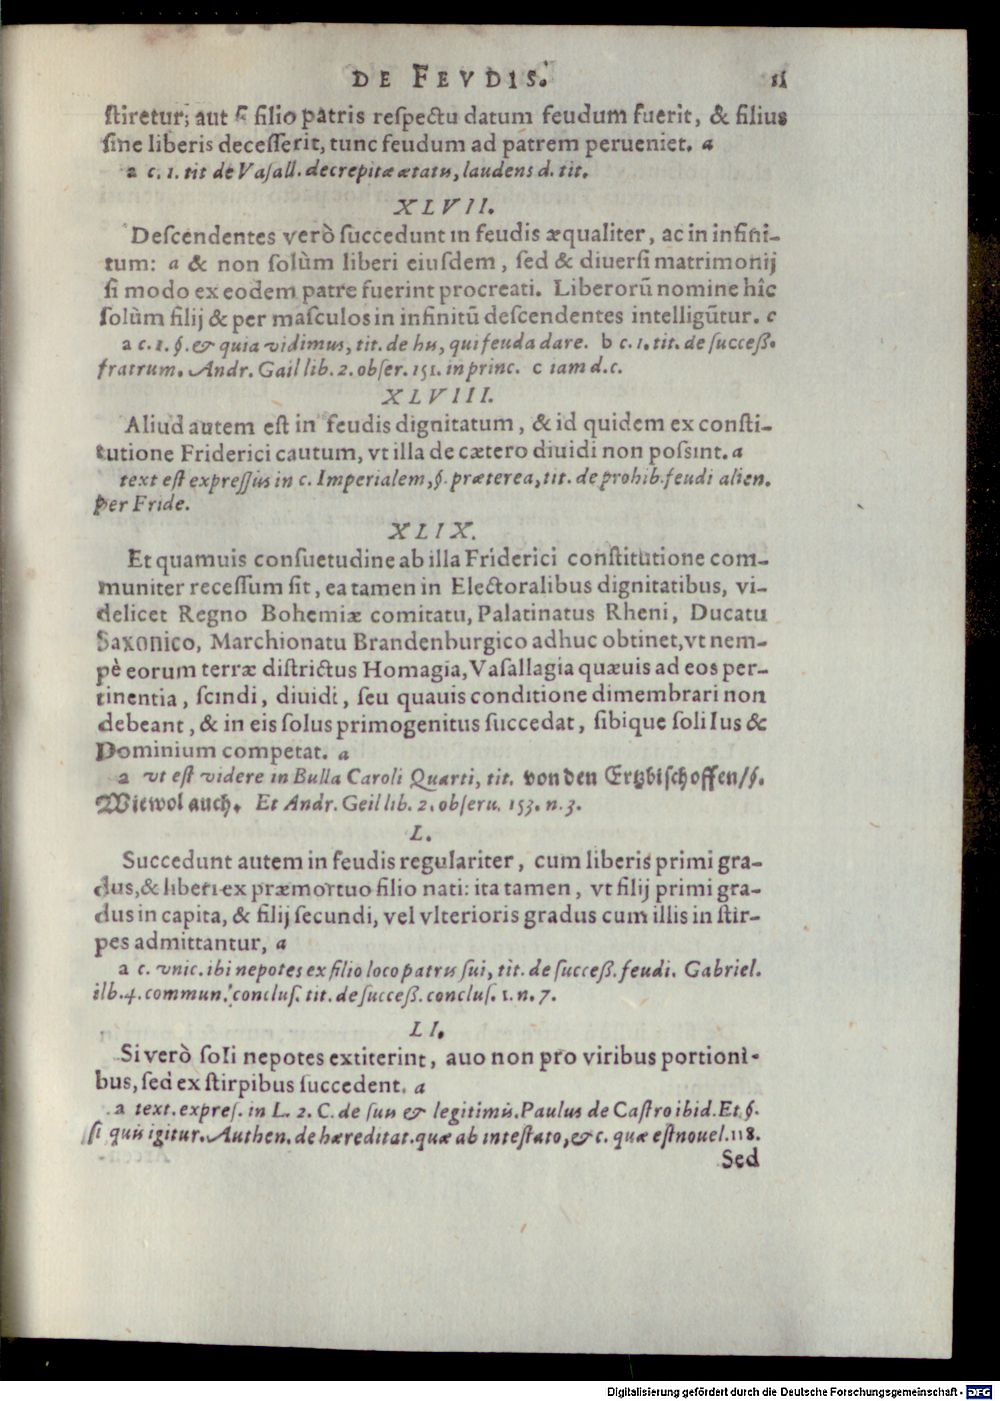 DE FEVDIS. 11
ſtiretur; aut ſi filio patris reſpectu datum feudum fuerit, & filius
ſine liberis deceſſerit, tunc feudum ad patrem perueniet. a
a c. 1. tit de Vaſall. decrepitæ ætatis, laudens d. tit.
XLVII.
Deſcendentes verò ſuccedunt in feudis æqualiter, ac in infini-
tum: a & non ſolùm liberi eiuſdem, ſed & diuerſi matrimonij
ſi modo ex eodem patre fuerint procreati. Liberorū nomine hîc
ſolùm filij & per maſculos in infinitū deſcendentes intelligūtur. c
a c. 1. §. & quia vidimus, tit. de his, qui feuda dare. b c. 1. tit. de ſucceß.
fratrum. Andr. Gail lib. 2. obſer. 151. in princ. c iam d. c.
XLVIII.
Aliud autem eſt in feudis dignitatum, & id quidem ex conſti-
tutione Friderici cautum, vt illa de cætero diuidi non poſsint. a
text eſt expreſſus in c. Imperialem, §. præterea, tit. de prohib. feudi alien.
per Fride.
XLIX.
Et quamuis conſuetudine ab illa Friderici conſtitutione com-
muniter receſſum ſit, ea tamen in Electoralibus dignitatibus, vi-
delicet Regno Bohemiæ comitatu, Palatinatus Rheni, Ducatu
Saxonico, Marchionatu Brandenburgico adhuc obtinet, vt nem-
pè eorum terræ diſtrictus Homagia, Vaſallagia quæuis ad eos per-
tinentia, ſcindi, diuidi, ſeu quauis conditione dimembrari non
debeant, & in eis ſolus primogenitus ſuccedat, ſibique ſoli Ius &
Dominium competat. a
a vt eſt videre in Bulla Caroli Quarti, tit. von den Ertzbiſchoffen/ §.
Wiewol auch. Et Andr. Geil lib. 2. obſeru. 153. n. 3.
L.
Succedunt autem in feudis regulariter, cum liberis primi gra-
dus, & liberi ex præmortuo filio nati: ita tamen, vt filij primi gra-
dus in capita, & filij ſecundi, vel vlterioris gradus cum illis in ſtir-
pes admittantur, a
a c. vnic. ibi nepotes ex filio loco patris ſui, tit. de ſucceß. feudi. Gabriel.
ilb. 4. commun. concluſ. tit. de ſucceß. concluſ. 1. n. 7.
LI.
Si verò ſoli nepotes extiterint, auo non pro viribus portioni-
bus, ſed ex ſtirpibus ſuccedent. a
a text. expreſ. in L. 2. C. de ſuis & legitimis. Paulus de Caſtro ibid. Et §.
ſi quis igitur. Authen. de hæreditat. quæ ab inteſtato, & c. quæ eſt nouel. 118.
Sed
Digitalisierung gefördert durch die Deutsche Forschungsgemeinschaft - DFG